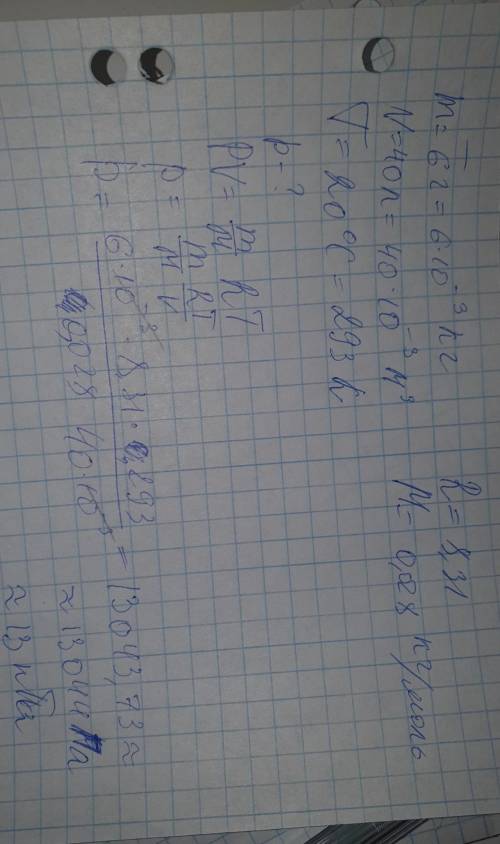 m = 6 г = 6·10⁻³ кг R = 8,31
V = 40 л = 40·10⁻³ м³ M = 0,028 кг/моль
T = 20°C = 293 K
p - ?
pV = m/M RT
p = m/M RT/V
p = 6·10⁻³ · 8,31 · 293 / 0,028 40·10⁻³ = 13043,73 ≈
≈ 13044 Па
≈ 13 кПа